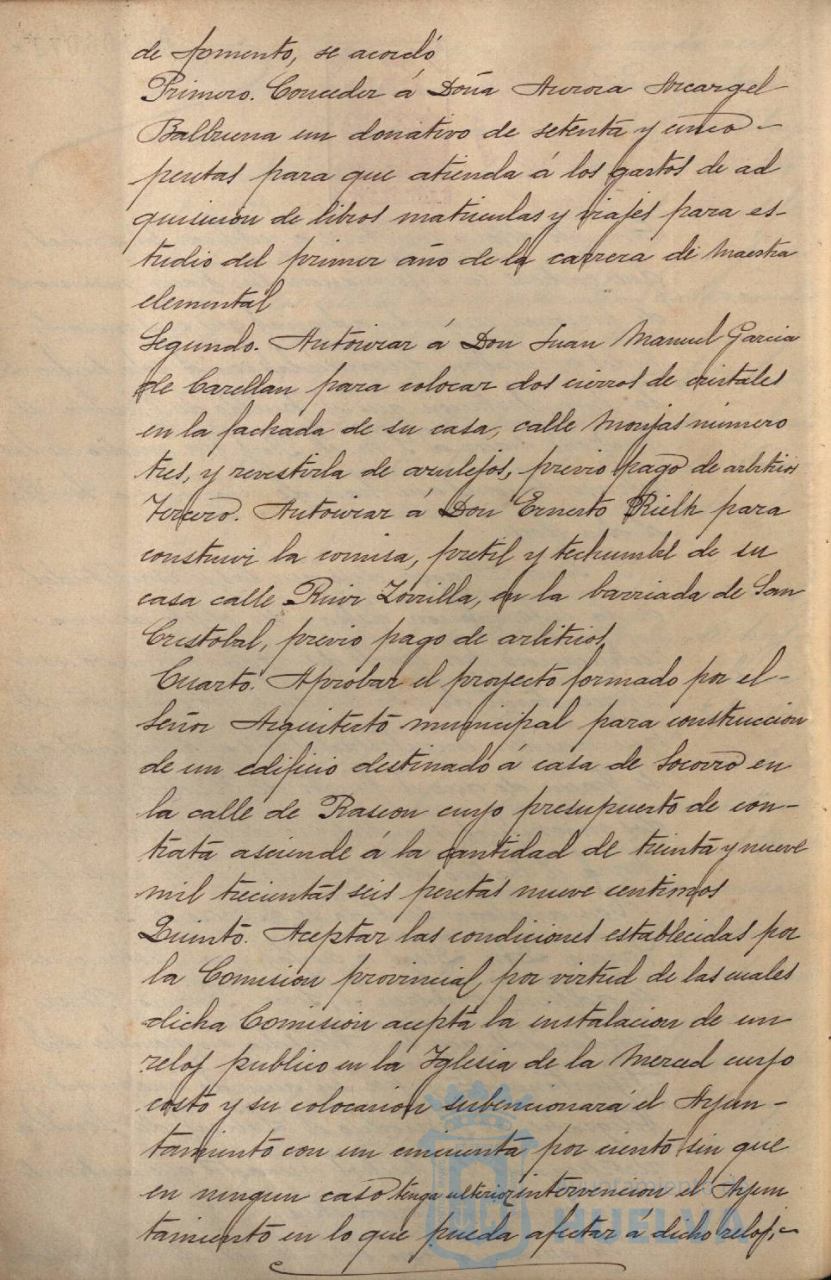 de fomento, se acordó
Primero. Conceder á Doña Aurora Arcangel
Balbuena un donativo de setenta y cinco
pesetas para que atienda á los gastos de ad
quisicion de libros matriculas y viajes para es-
tudio del primer año de la carrera de Maestra
elemental
Segundo. Autorizar á Don Juan Manuel Garcia
de Carellan para colocar dos cierros de cristales
en la fachada de su casa, calle Monjas número
tres, y revestirla de azulejos, previo pago de arbitrios
Tercero. Autorizar á Don Ernesto para
construir la cornisa, pretil y techumbre de su
casa calle Ruiz Zorrilla, en la barriada de San
Cristobal, previo pago de arbitrios
Cuarto. Aprobar el proyecto formado por el-
Señor Arquitecto municipal para construccion
de un edificio destinado á casa de Socorro en
la calle de Rascon cuyo presupuesto de con-
trata asciende á la cantidad de treinta y nueve
mil trecientas seis pesetas nueve centimos
Quinto. Aceptar las condiciones establecidas por
la Comision provincial, por virtud de las cuales
dicha Comisión acepta la instalacion de un
reloj publico en la Iglesia de la Merced cuyo
costo y su colocacion subencionará el Ayun-
tamiento con un cincuenta por ciento sin que
en ningun caso tenga ulterior intervencion el Ayun
tamiento en lo que pueda afectar á dicho reloj.-
Ayuntamiento de
HUELVA